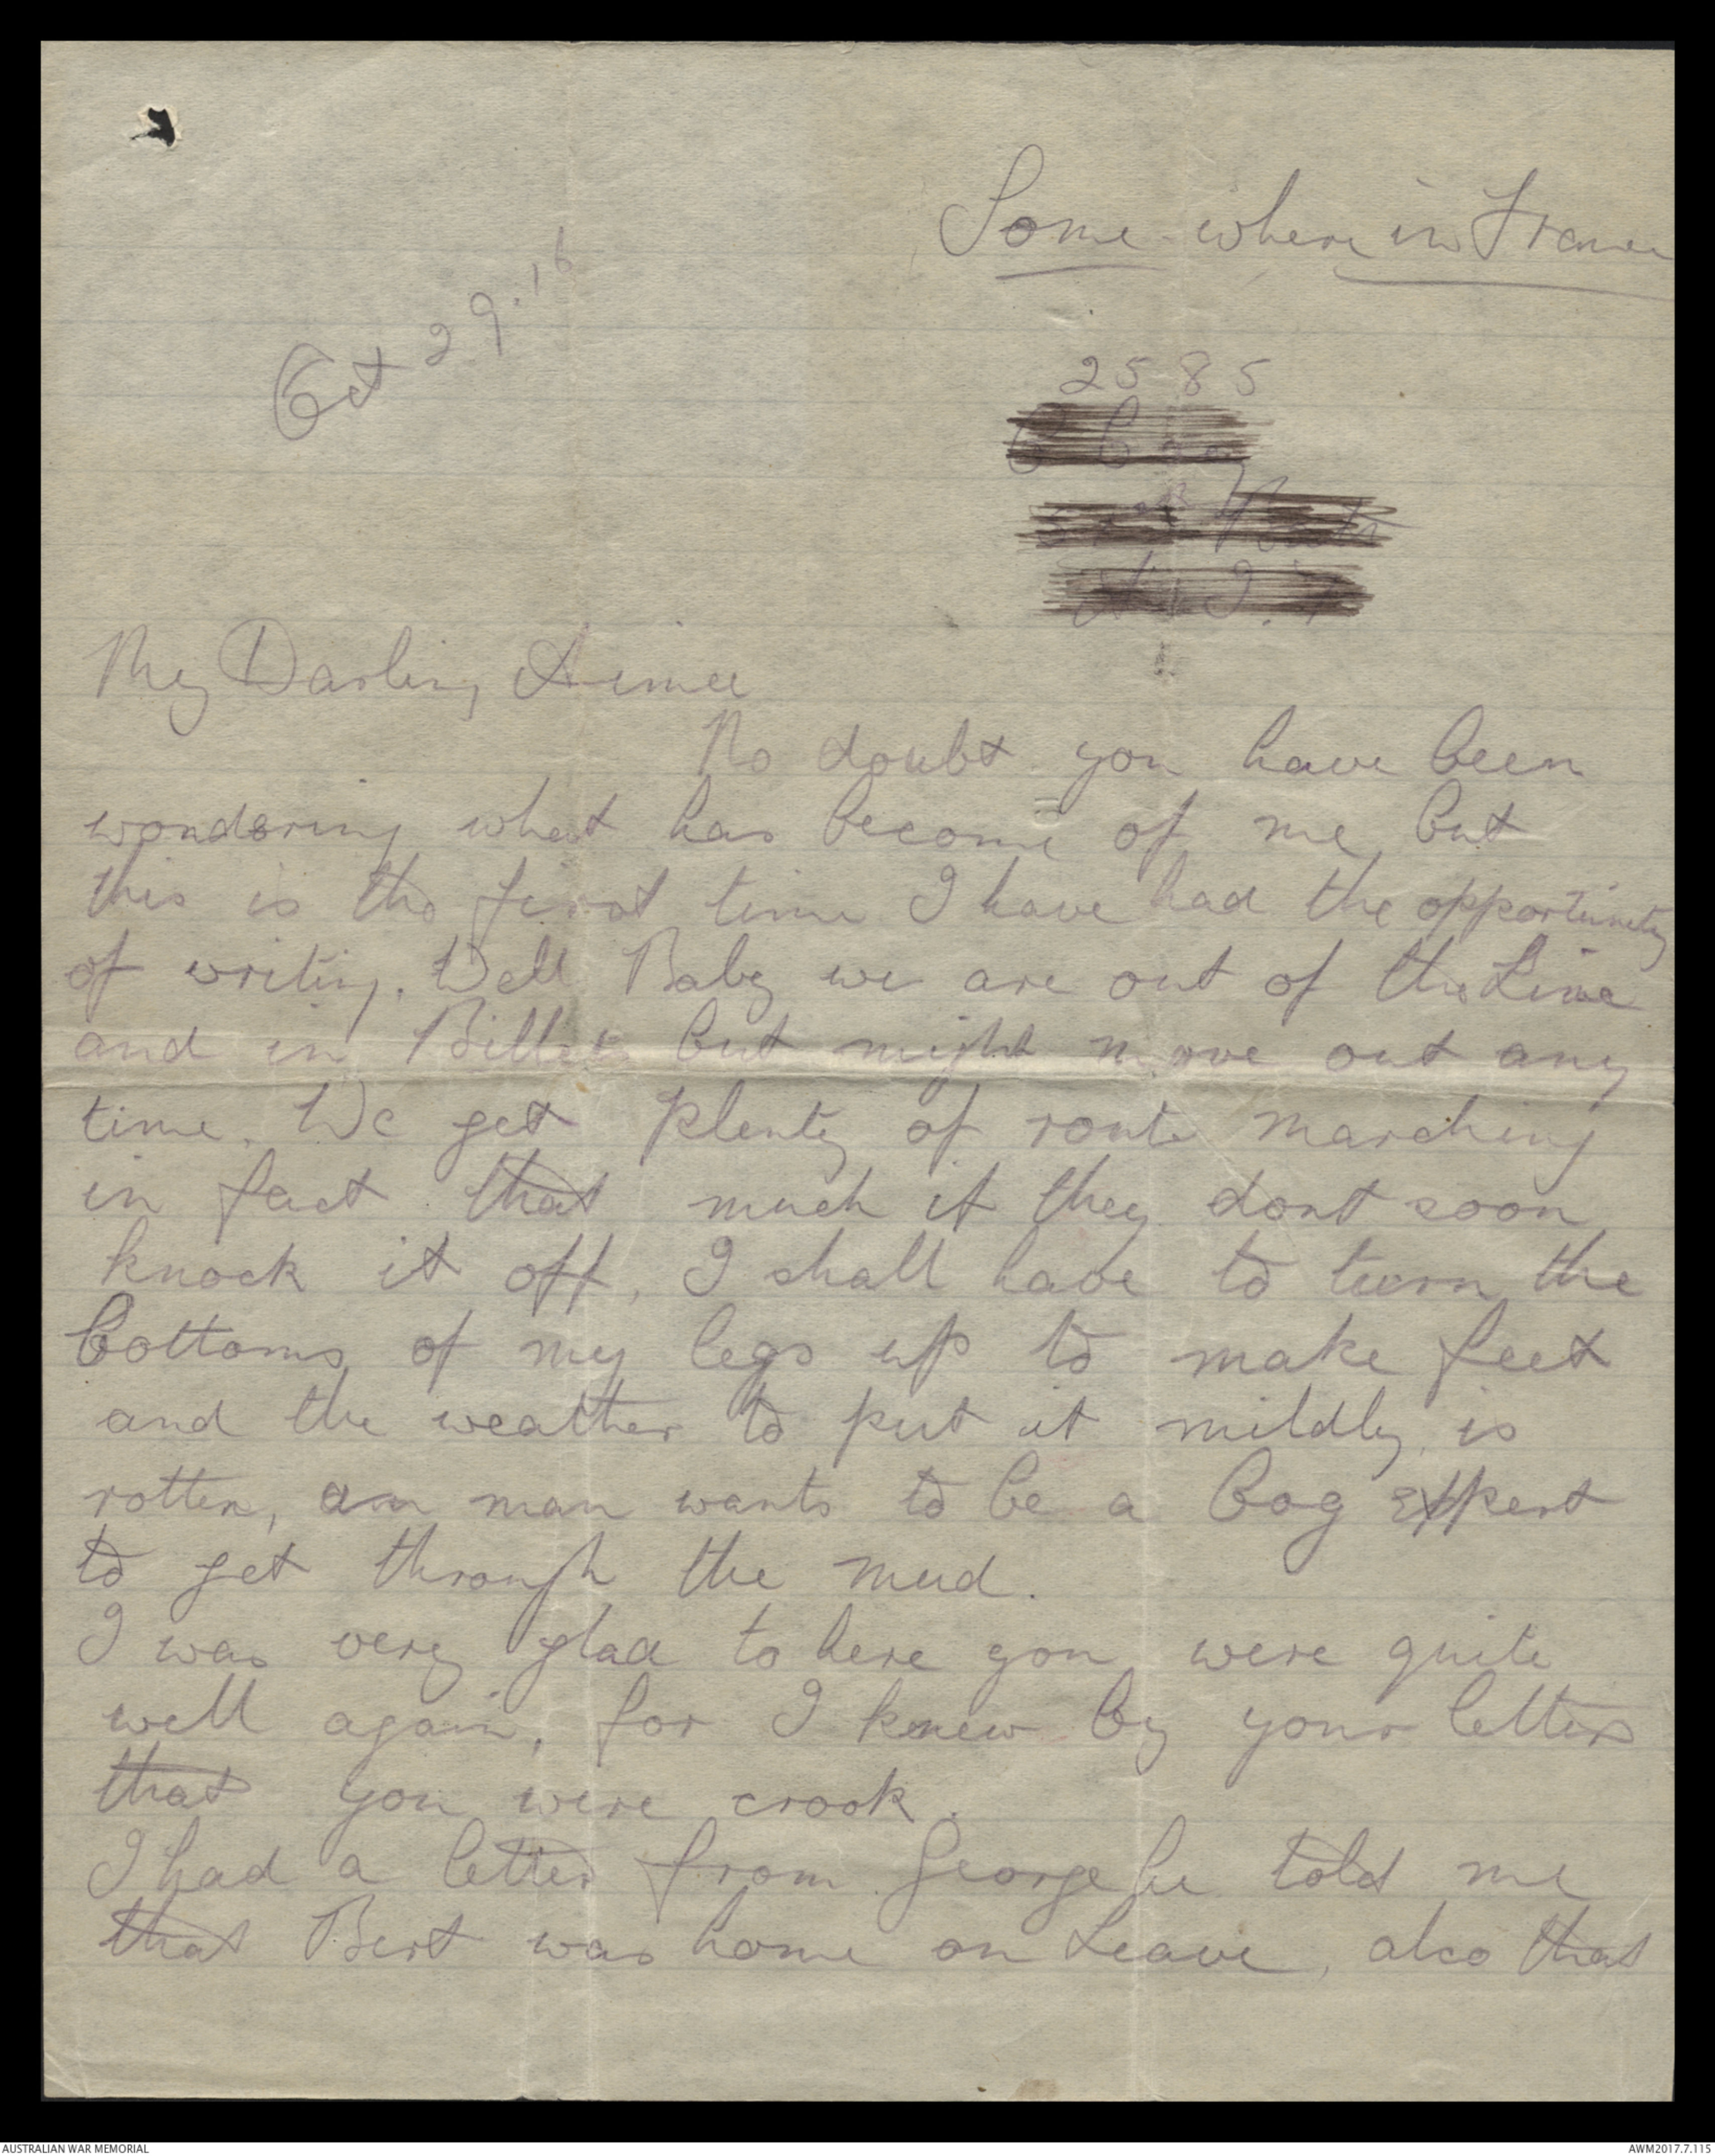 Some where in France
Oct 29.16
2585
My Darling Aimee
No doubt you have been
wondering what has become of me but
this is the first time I have had the opportunity
of writing. Well Baby we are out of the Line
and in Billets but might move out any
time. We get plenty of route marching
in fact that much if they dont soon
knock it off, I shall have to turn the
bottoms of my legs up to make feet
and the weather to put it mildly is
rotten, a man wants to be a bog expert
to get through the mud.
I was very glad to here you were quite
well again, for I knew by your letters
that you were crook.
I had a letter from George he told me
that Bert was home on Leave, also that
AUSTRALIAN WAR MEMORIAL
AWM2017.7.115